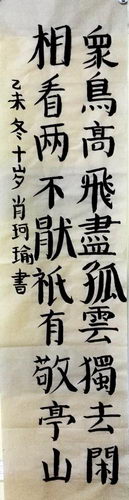 衆鳥高飛盡孤雲獨去閑
相看两不厭祇有敬亭山
乙未冬十岁肖珂瑜書